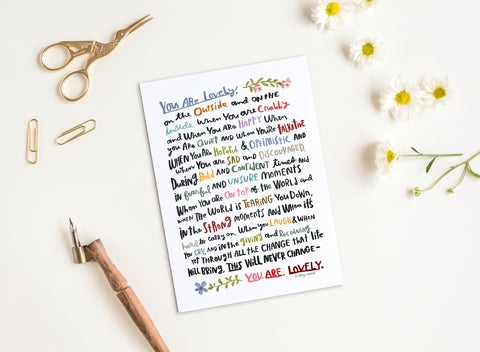 You Are Lovely.
on the Outside and on the
Inside when you are Crabby
and when you are HAPPY. When
you are Quiet and when you're TALKATIVE
WHEN YOU ARE Hopeful & OPTIMISTIC and
when you are SAD and DISCOURAGED.
DURING Bold and CONFIDENT times and
in fearful and UNSURE MOMENTS
When you are On top of the WORLD and
when THE WORLD is TEARING YOU DOWN,
in the STRONG moments and when it's
hard to carry on. When you LAUGH & WHEN
YOU CRY, AND in the giving and Receiving
YET THROUGH ALL THE CHANGE that life
WILL BRING, THIS WILL NEVER CHANGE-
YOU. ARE. LOVELY.